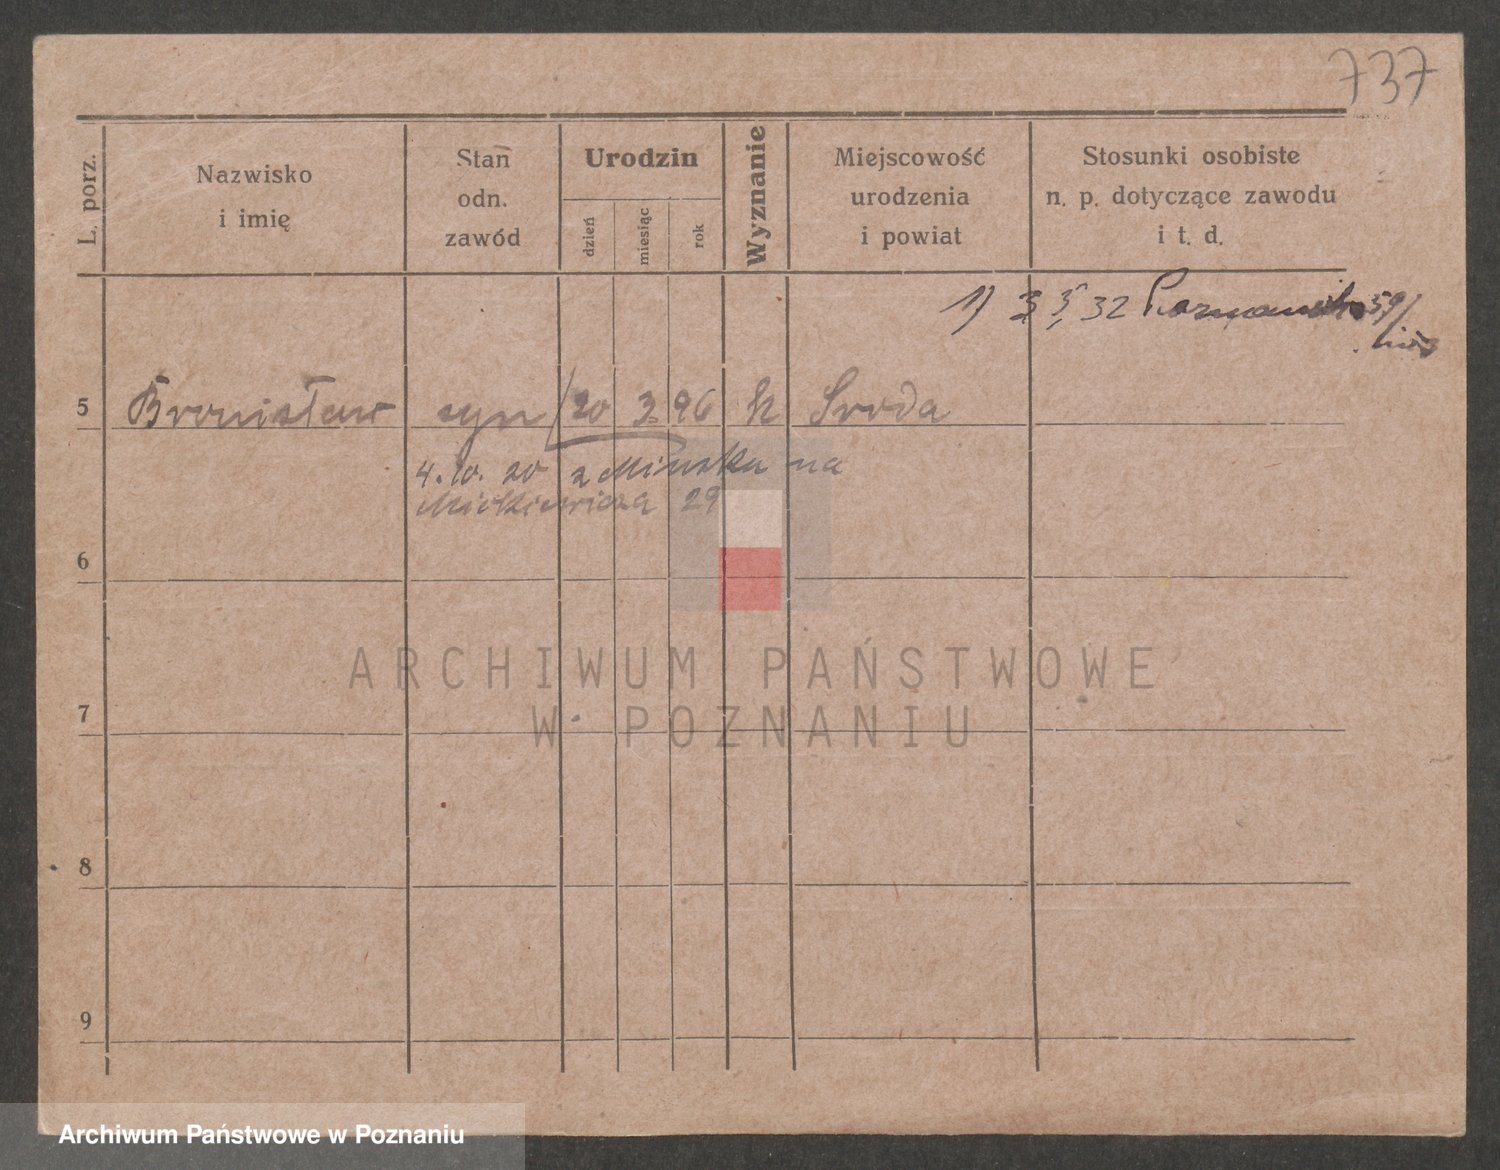 737
L. porz.
Nazwisko
i imię
Stan
odn.
zawód
Urodzin
dzień
miesiąc
rok
Wyznanie
Miejscowość
urodzenia
i powiat
Stosunki osobiste
n. p. dotyczące zawodu
i t. d.
1) 3 5 32
5 Bronisław syn 20 3. 96 k Sroda
4. 10. 20 z Mińska na
Mickiewicza 29
6
ARCHIWUM PAŃSTWOWE
7
W POZNANIU
8
9
Archiwum Państwowe w Poznaniu